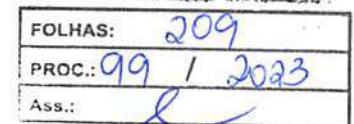 FOLHAS: 209
PROC.: 99 / 2023
Ass.: